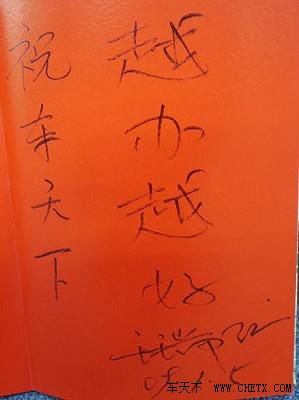 祝车天下
越办越好
车天下 WWW.CHETX.COM